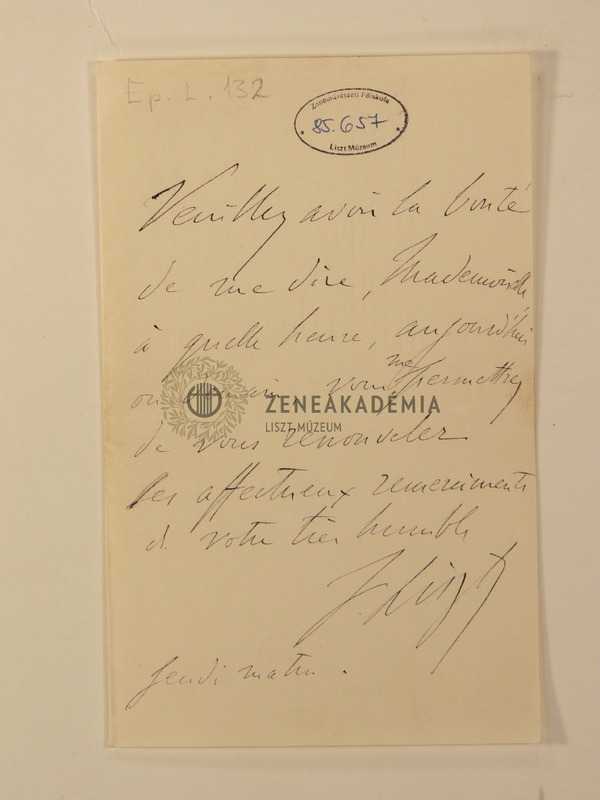 Ep. L. 132
Zeneművészeti Főiskola
85.657
Liszt Múzeum
Veuillez avoir la bonté
de me dire, Mademoiselle
à quelle heure, aujourd'hui
ou demain, vous me permettrez
ZENEAKADÉMIA
LISZT MÚZEUM
de vous renouveler
les affectueux remerciments
de votre très humble
F. Liszt
Jeudi matin.